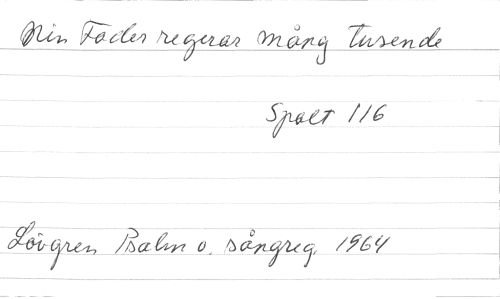 Min Fader regerar mång tusende
Spalt 116
Lövgren Psalm o. sångreg. 1964